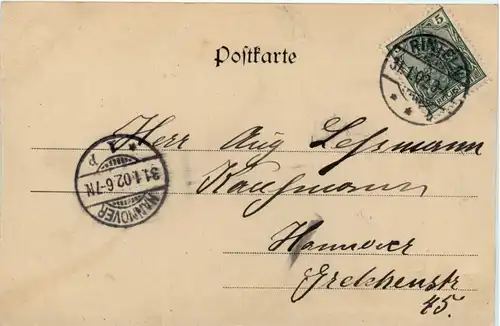 Postkarte
5
RINTELN
31.1.02.
Herr Aug Lehmann
Kaufmann
Hannover
Gretchenstr
45.
HANNOVER
31.1.02.6-7N